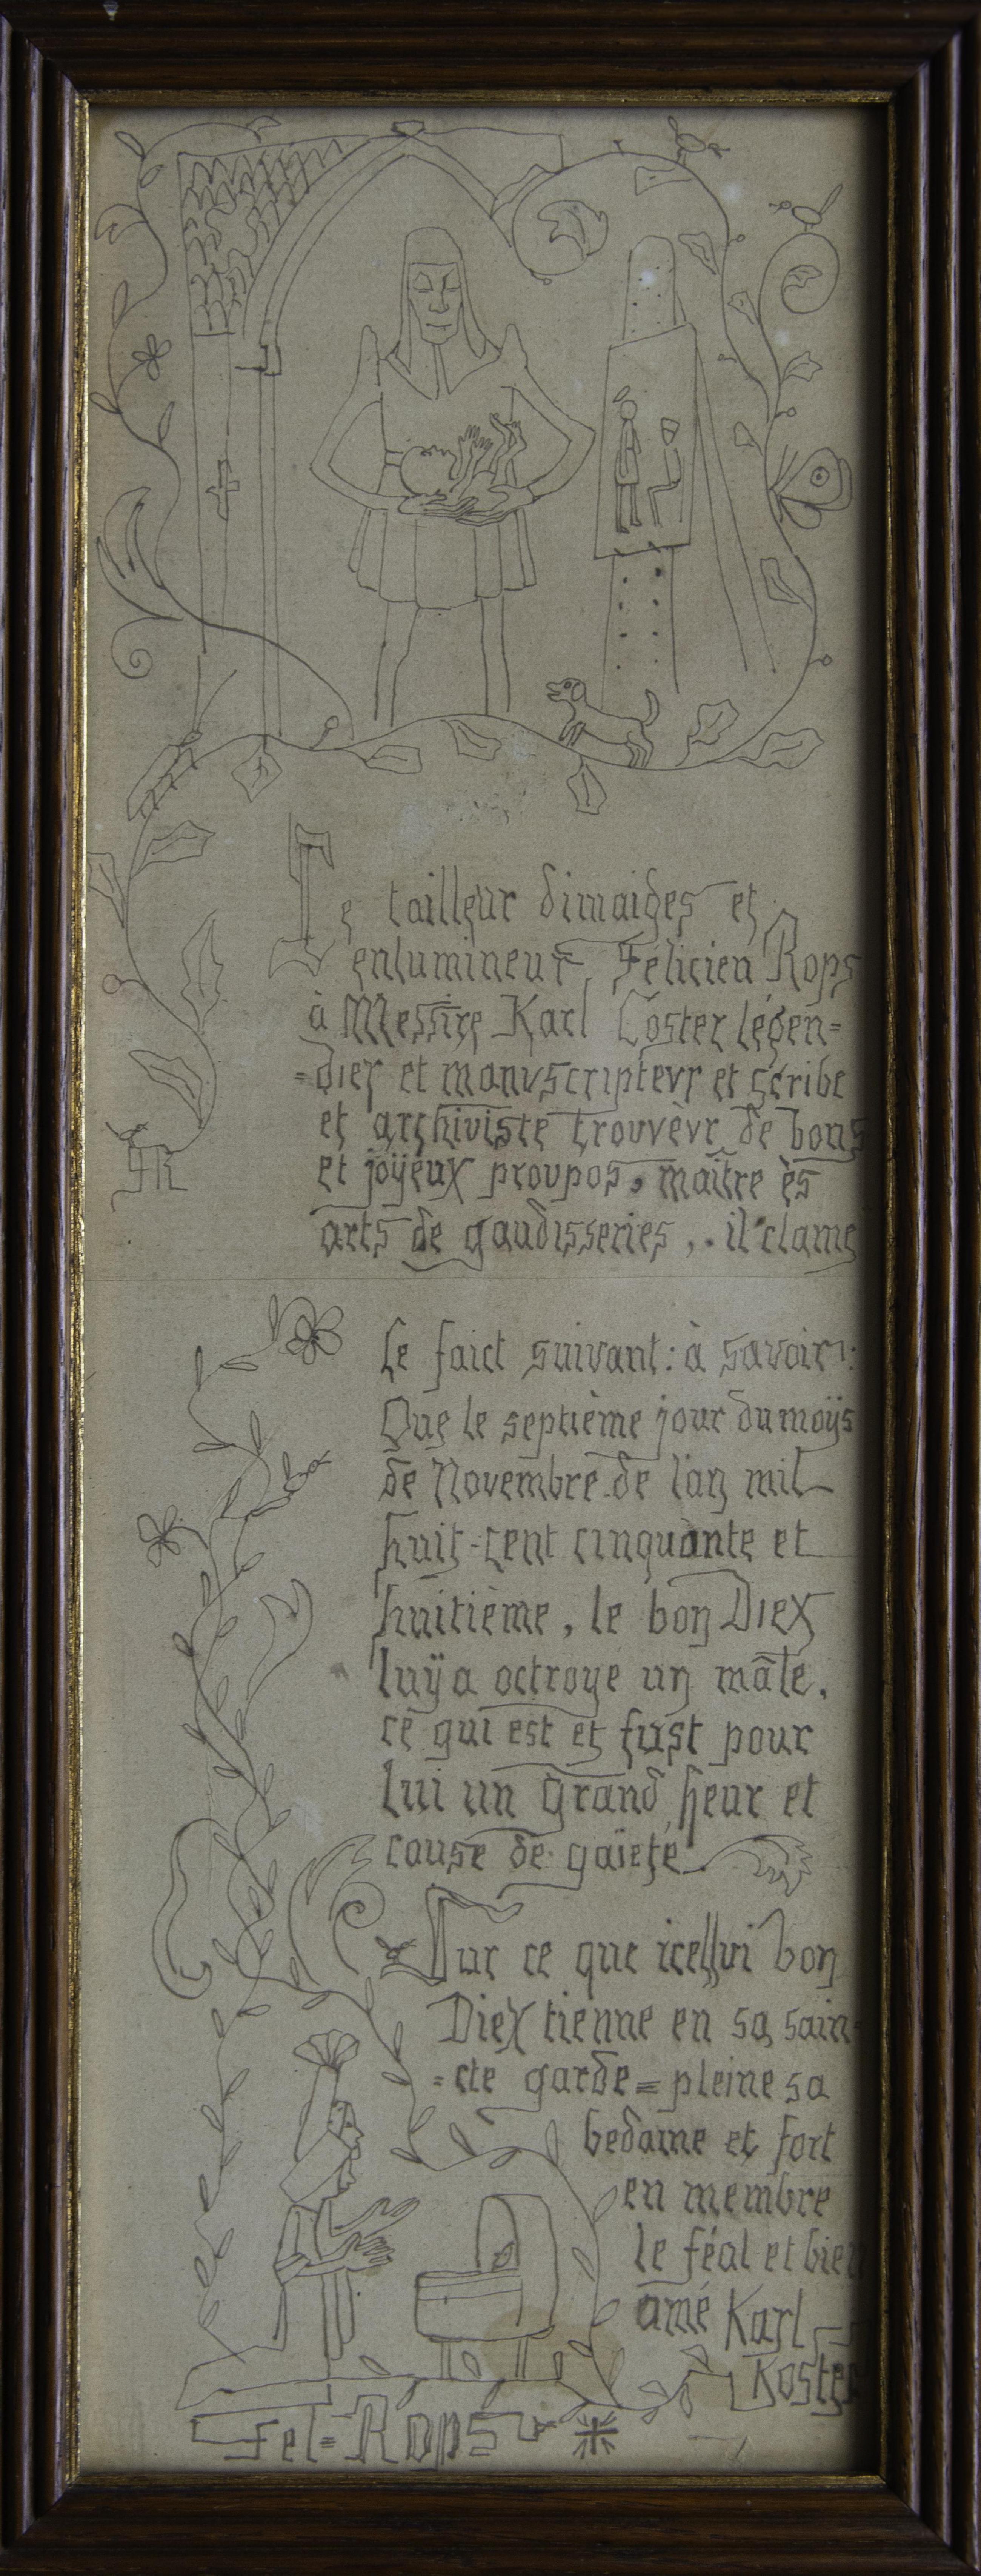 Le tailleur dimaiges et
enlumineur Félicien Rops
à Messire Karl Coster légen=
=dier et manvscriptevr et scribe
et archiviste trouvèvr de bons
et joÿeux provpos, maître ès
arts de gaudisseries, . il clame
FR
le faict suivant : à savoir :
Que le septième jour du moÿs
de Novembre de l'an mil
huit-cent cinquante et
huitième, le bon Diex
luÿ a octroyé un mâle.
ce qui est et fust pour
lui un grand heur et
cause de gaïeté.
Sur ce que icellvi bon
Diex tienne en sa sain=
=cte garde = pleine sa
bedaine et fort
en membre
le féal et bien
amé Karl
Koster
Fel=Rops